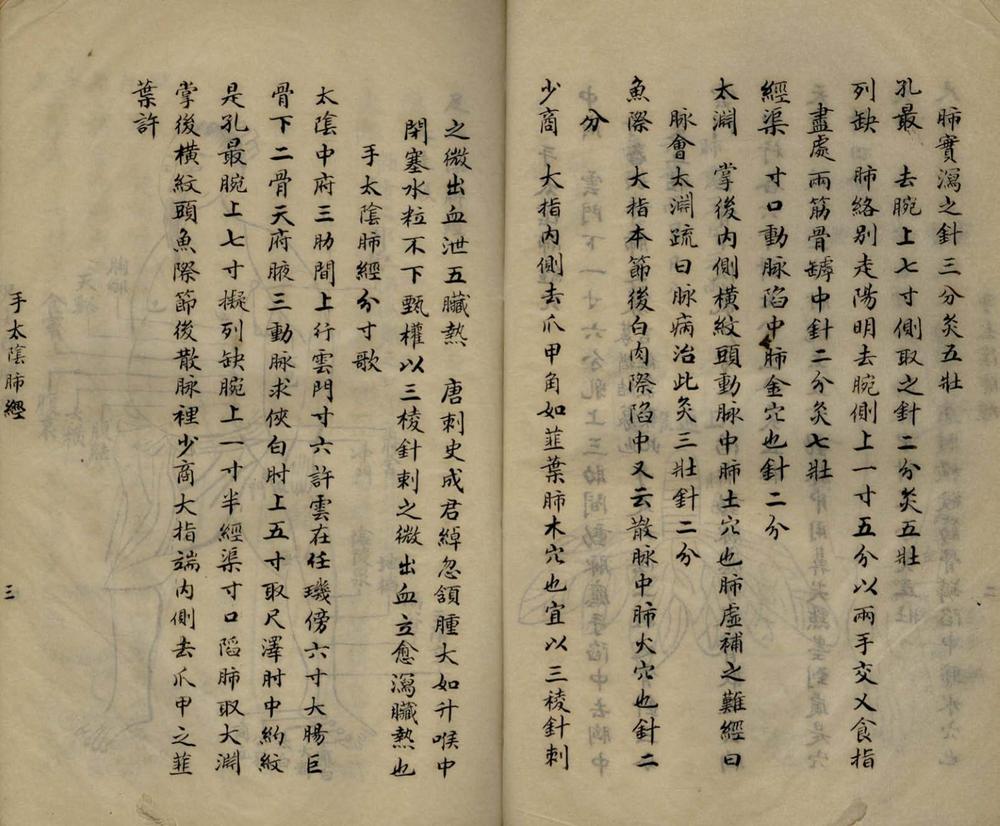 肺實瀉之針三分灸五壯
孔最　去腕上七寸側取之針二分灸五壯
列缺　肺絡別走陽明去腕側上一寸五分以兩手交叉食指
盡處兩筋骨罅中針二分灸七壯
經渠　寸口動脉陷中肺金穴也針二分
太淵　掌後内側橫紋頭動脉中肺土穴也肺虛補之難經曰
脉會太淵疏曰脉病治此灸三壯針二分
魚際　大指本節後白肉際陷中又云散脉中肺火穴也針二
分
少商　大指内側去爪甲角如韮葉肺木穴也宜以三棱針刺
之微出血泄五臟熱　唐刺史成君綽忽頷腫大如升喉中
閉塞水粒不下甄權以三棱針刺之微出血立愈瀉臟熱也
手太陰肺經分寸歌
太陰中府三肋間上行雲門寸六許雲在任璣傍六寸大腸巨
骨下二骨天府腋三動脉求俠白肘上五寸取尺澤肘中約紋
是孔最腕上七寸擬列缺腕上一寸半經渠寸口陷肺取大淵
掌後橫紋頭魚際節後散脉裡少商大指端内側去爪甲之韮
葉許
手太陰肺經
三